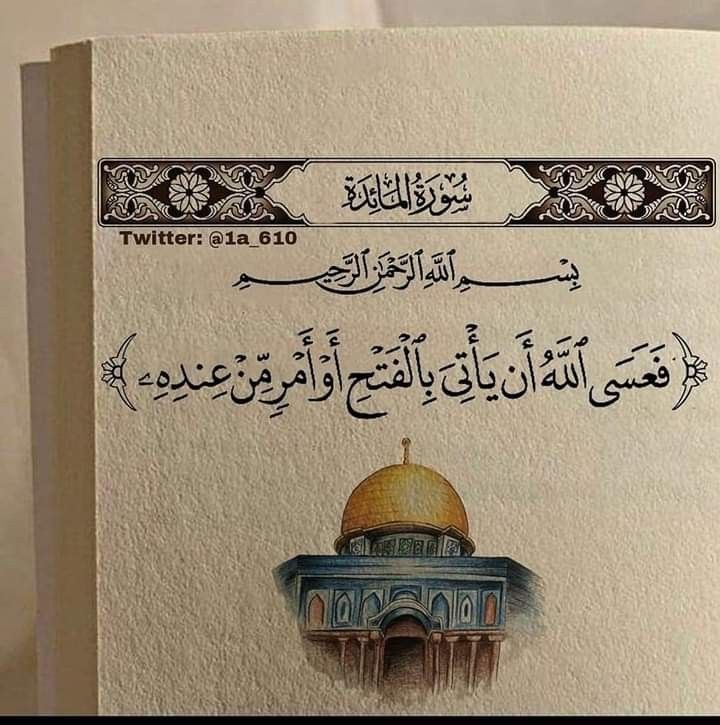 سُورَةُ المَائِدَةِ
Twitter: @1a_610
بِسْمِ ٱللَّهِ ٱلرَّحْمَٰنِ ٱلرَّحِيمِ
﴿فَعَسَى ٱللَّهُ أَن يَأْتِىَ بِٱلْفَتْحِ أَوْ أَمْرٍ مِّنْ عِندِهِۦ﴾